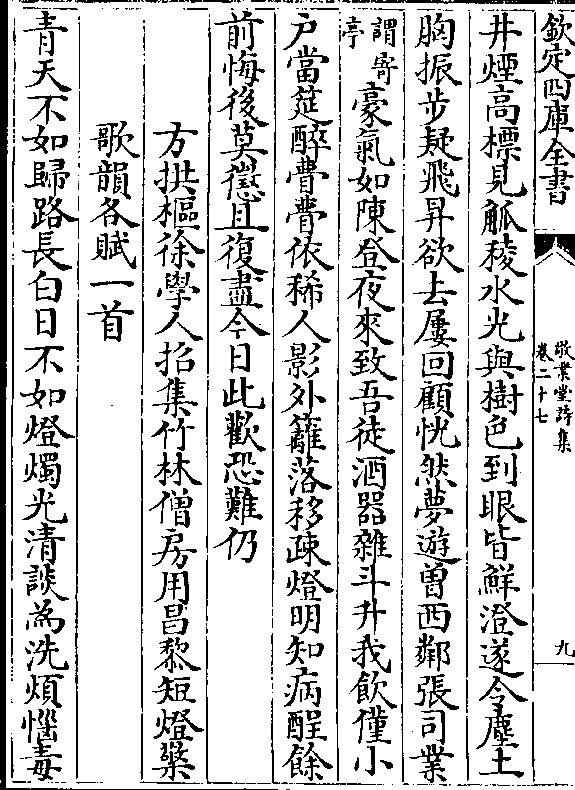 欽定四庫全書
敬業堂詩集
卷二十七
九
井煙高標見觚稜水光與樹色到眼皆鮮澄遂令塵土
胸振步疑飛昇欲去屢回顧恍然夢遊曽西鄰張司業
謂寄
亭
豪氣如陳登夜來致吾徒酒器雜斗升我飲僅小
户當筵醉瞢瞢依稀人影外籬落移疎燈明知病酲餘
前悔後莫懲且復盡今日此歡恐難仍
方拱樞徐學人招集竹林僧房用昌黎短燈檠
歌韻各賦一首
青天不如歸路長白日不如燈燭光清談為洗煩惱毒